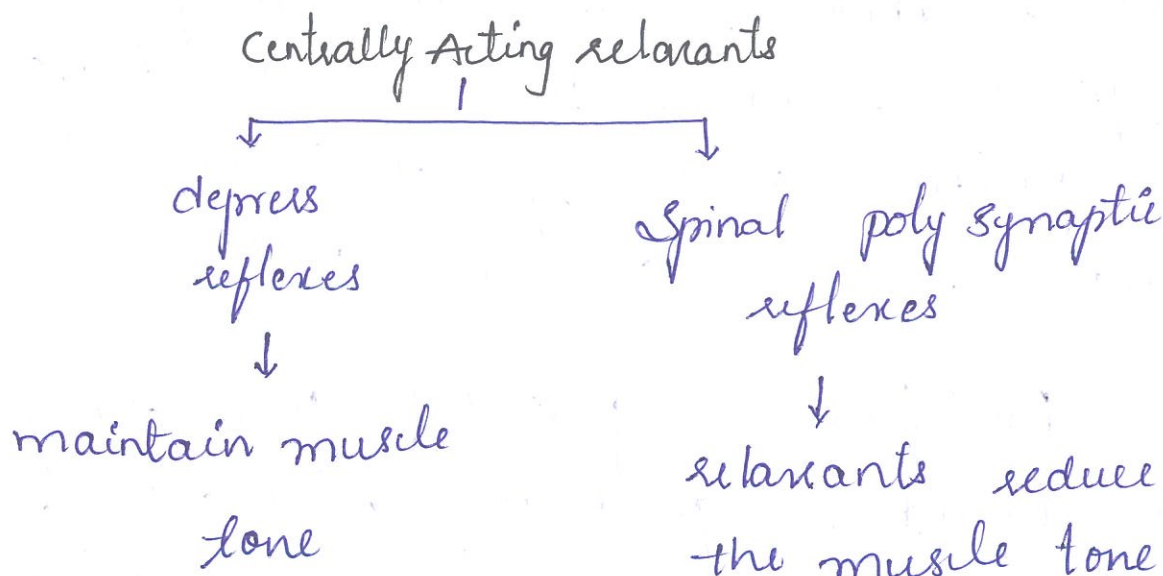 Centrally Acting relaxants
depress
reflexes
maintain muscle
tone
Spinal poly synaptic
reflexes
relaxants reduce
the muscle tone